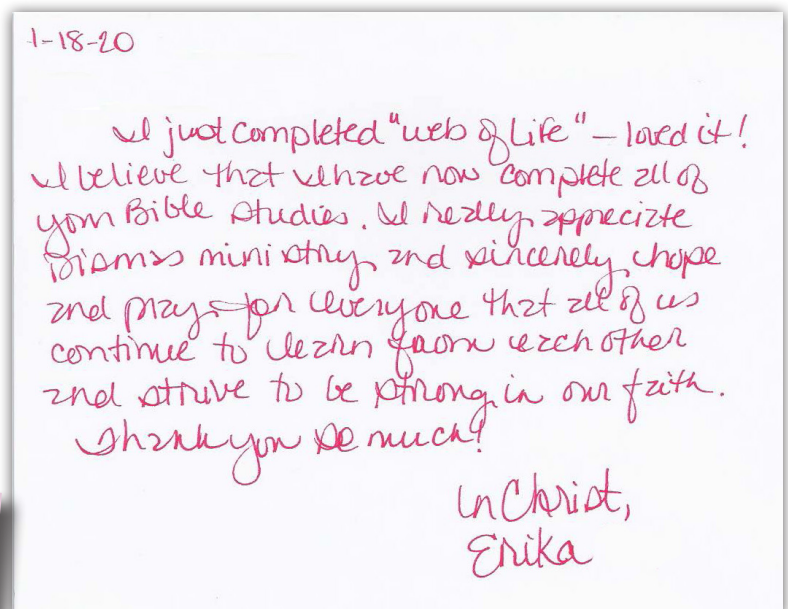 1-18-20
I just completed "web of Life" – loved it!
I believe that I have now complete all of
your Bible studies. I really appreciate
Dismas ministry and sincerely hope
and pray for everyone that all of us
continue to learn from each other
and strive to be strong in our faith.
Thank you so much!
In Christ,
Erika